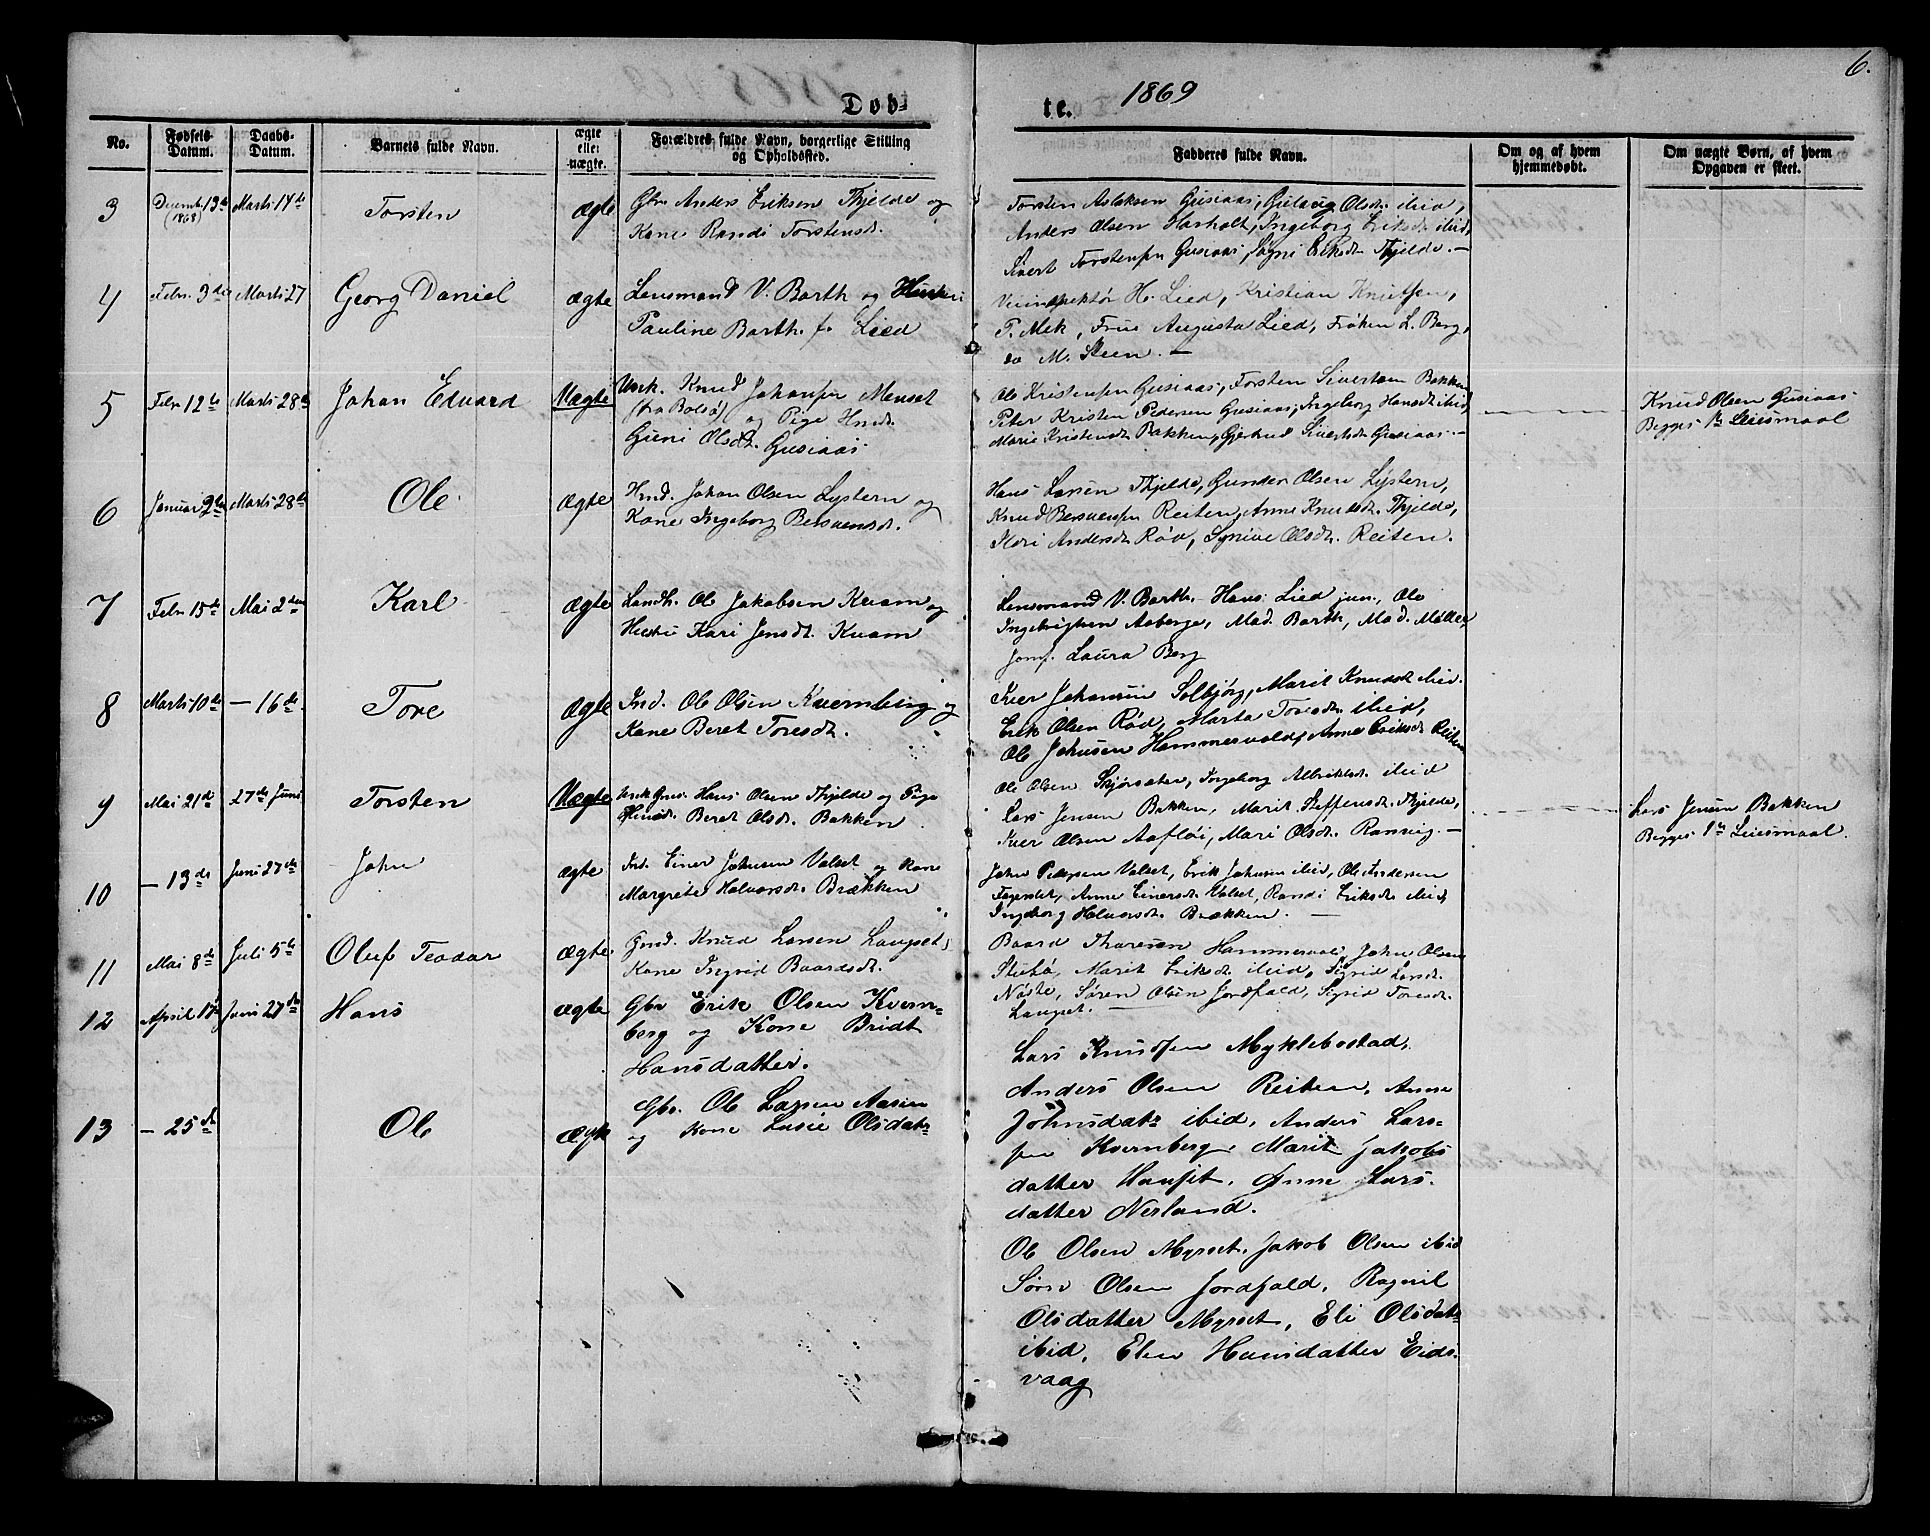 6.
Døb-
te.
1869
No.
Fødsels-
Datum.
Daabs-
Datum.
Barnets fulde Navn.
ægte
eller
uægte.
Forældres fulde Navn, borgerlige Stilling
og Opholdssted.
Fadderes fulde Navn.
Om og af hvem
hjemmedøbt.
Om uægte Børn, af hvem
Opgaven er skeet.
3
Decemb. 13de
(1868)
Marts 14de
Torsten
Ægte
Gbr. Anders Eriksen Thjelde og
Kone Randi Torstensdt.
Torsten Aslaksen Gusiaas, Olsdt. ibid,
Anders Olsen Harholt, Ingeborg Eriksdt. ibid,
Sivert Torstensen Gusiaas, Eriksdt. Thjelde. —
4
Febr. 3de
Marts 27
Georg Daniel
Ægte
Lensmand V. Barth og Hustru
Pauline Barth f. Lied
Veiinspektør H. Lied, Kristian Knutsen,
P. Mek, Frue Augusta Lied, Frøken L. Berg,
do M. Steen. —
5
Febr 12te
Marts 28de
Johan Edvard
Uægte
Unk. Knud Johansen Menset
(fra Bolsø) og Pige Hmdt.
Guni Olsdt. Gusiaas
Ole Kristensen Gusiaas, Torsten Sivertsen Bakken,
Peter Kristen Pedersen Gusiaas, Ingeborg Hansdt. ibid,
Marie Kristensdt. Bakken, Gjertrud Sivertsdt. Gusiaas. —
Knud Olsen Gusiaas
Begges 1ste Leiermaal
6
Januar 2den
Marts 28de
Ole
Ægte
Hmd. Johan Olsen Lystern og
Kone Ingeborg Bersvensdt.
Hans Larsen Thjelde, Gunder Olsen Lystern,
Knud Bersvensen Reiten, Anne Knudsdt. Thjelde,
Andersdt. Rød, Synive Olsdt. Reiten.
7
Febr 15de
Mai 2den
Karl
Ægte
Landh. Ole Jakobsen Kvam og
Hustru Kari Jensdt. Kvam
Lensmand V. Barth, Hans Lied jun., Ole
Ingebrigtsen Aaberge, Mad. Barth, Mad. Møller,
Jomf. Laura Berg
8
Marts 10de
— 16de
Tore
Ægte
Ind. Ole Olsen Kvernberg og
Kone Beret Toresdt.
Iver Johansen Solbjørg, Marit Knudsdt. ibid.
Erik Olsen Rød, Marta Toresdt. ibid,
Ole Johnsen Hammervold, Anne Eriksdt. Reiten
9
Mai 21de
27de Juni
Torsten
Uægte
Unk. Hans Olsen Thjelde og Pige
Beret Olsdt. Bakken
Ole Olsen Skjørsæter, Ingeborg Albriktsdt. ibid
Lars Jensen Bakken, Marit Steffensdt. Thjelde,
Iver Olsen Aafløi, Mari Olsdt. Ranvig. —
Lars Jensen Bakken
Begges 1ste Leiermaal.
10
— 13de
Juni 27de
John
Ægte
Ind. Einer Johnsen Valset og Kone
Margrete Halvorsdt. Brækken
John Pedersen Valset, Erik Johnsen ibid, Ole Andersen
Fagerslet, Anne Einersdt. Valset, Randi Eriksdt. ibid,
Ingeborg Halvorsdt. Brækken. —
11
Mai 8de
Juli 5te
Oluf Teodor
Ægte
Gmd. Knud Larsen Langset,
Kone Ingrid Baardsdt.
Baard Hammervold, John Olsen
Stubø, Marit Eriksdt. ibid, Sigrid Larsdt.
Nøste, Søren Olsen Jordfald, Sigrid Toresdt.
Langset. —
12
April 17de
Juni 27de
Hans
Ægte
Gbr Erik Olsen Kvern-
berg og Kone Bridt
Hansdatter.
Lars Knudsen Myklebostad,
Anders Olsen Reiten, Anne
Johnsdatr ibid, Anders Lars-
sen Kvernberg, Marit Jakobs
datter Hauset, Anne Lars-
datter Nerland.
13
— 25de
Ole
Ægte
Gbr. Ole Larsen Aasen
og Kone Lusie Olsdatr
Ole Olsen Myrset, Jakob Olsen ibid
Søren Olsen Jordfald, Ragnil
Olsdatter Myrset, Eli Olsdatr
ibid, Elen Hansdatter Eids-
vaag